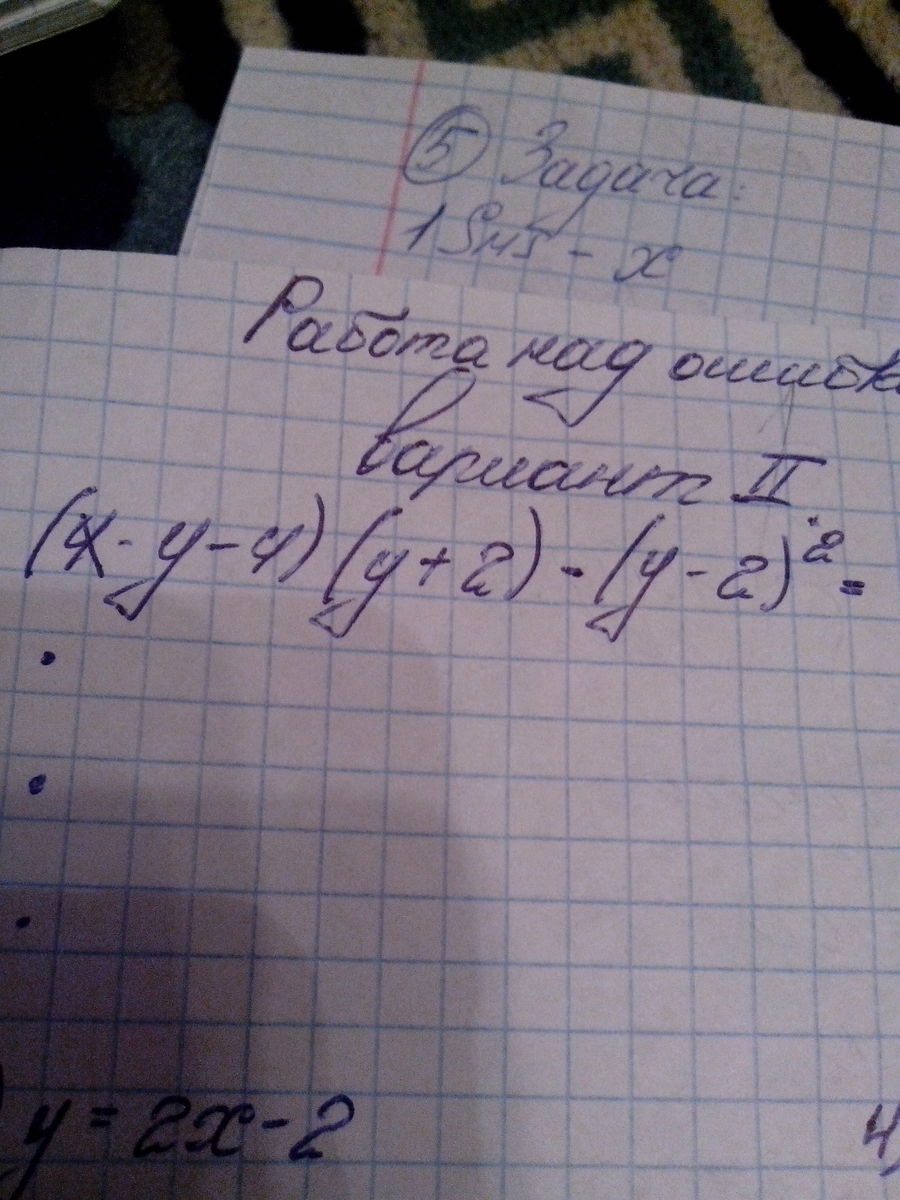 ⑤ Задача:
- x
Работа над ошибк
вариант II
y - 4) (y + 2) - (y - 2)² =
y = 2x - 2
4)